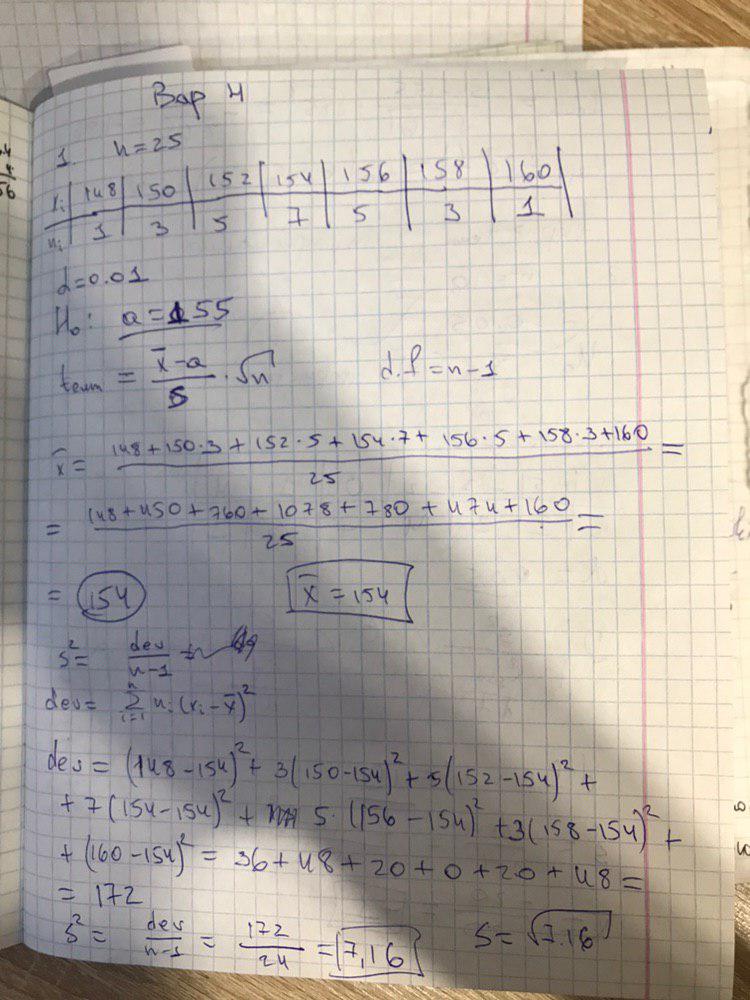 Вар 4
1. n=25
xi 148 150 152 154 156 158 160
ni 1 3 5 7 5 3 1
α=0.01
H₀: a=155
tемп = (x̄-a)/S · √n d.f=n-1
x̄ = (148+150·3+152·5+154·7+156·5+158·3+160)/25 =
= (148+450+760+1078+780+474+160)/25 =
= 154 x̄=154
s² = dev/(n-1)
dev= Σ_{i=1}^{n} ni(xi-x̄)²
dev = (148-154)²+3(150-154)²+5(152-154)²+
+7(154-154)²+5·(156-154)²+3(158-154)²+
+(160-154)²=36+48+20+0+20+48=
=172
s² = dev/(n-1) = 172/24 = 7,16 S=√7.16